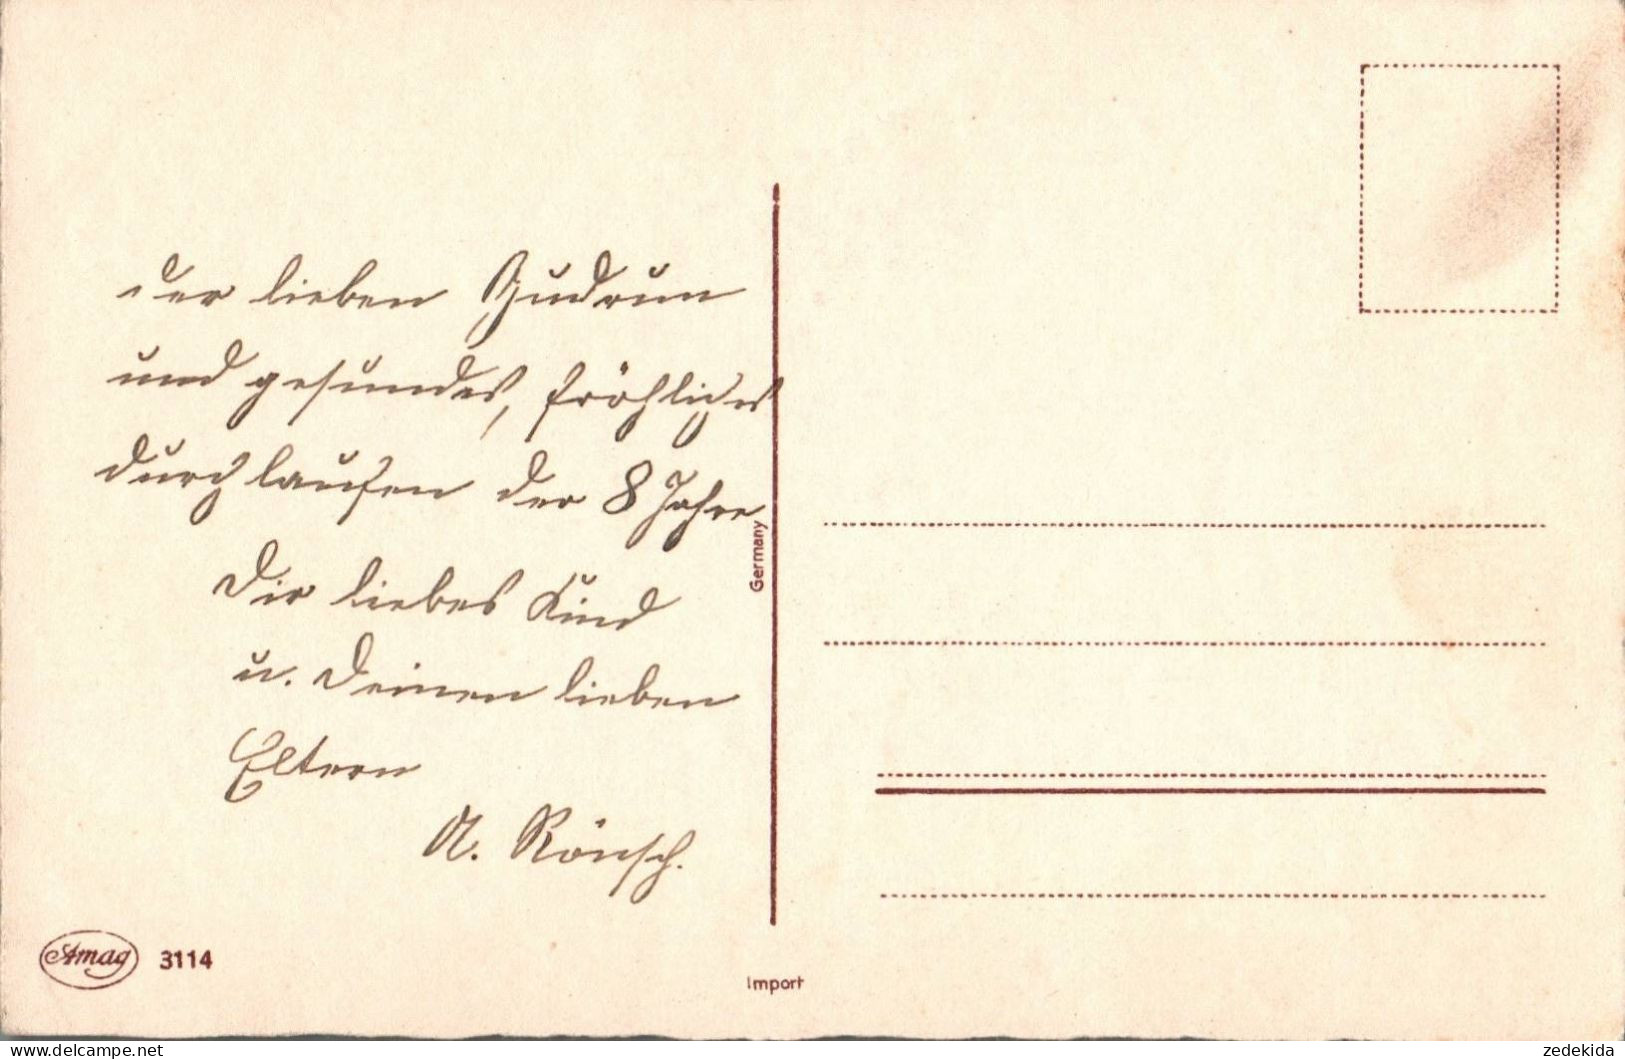 der lieben Gudrun
und gesundes, fröhliches
durchlaufen der 8 Jahre
Dir liebes Kind
u. Deinen lieben
Eltern
A. Rönsch.
Germany
Amag 3114
Import
zedekida
www.delcampe.net